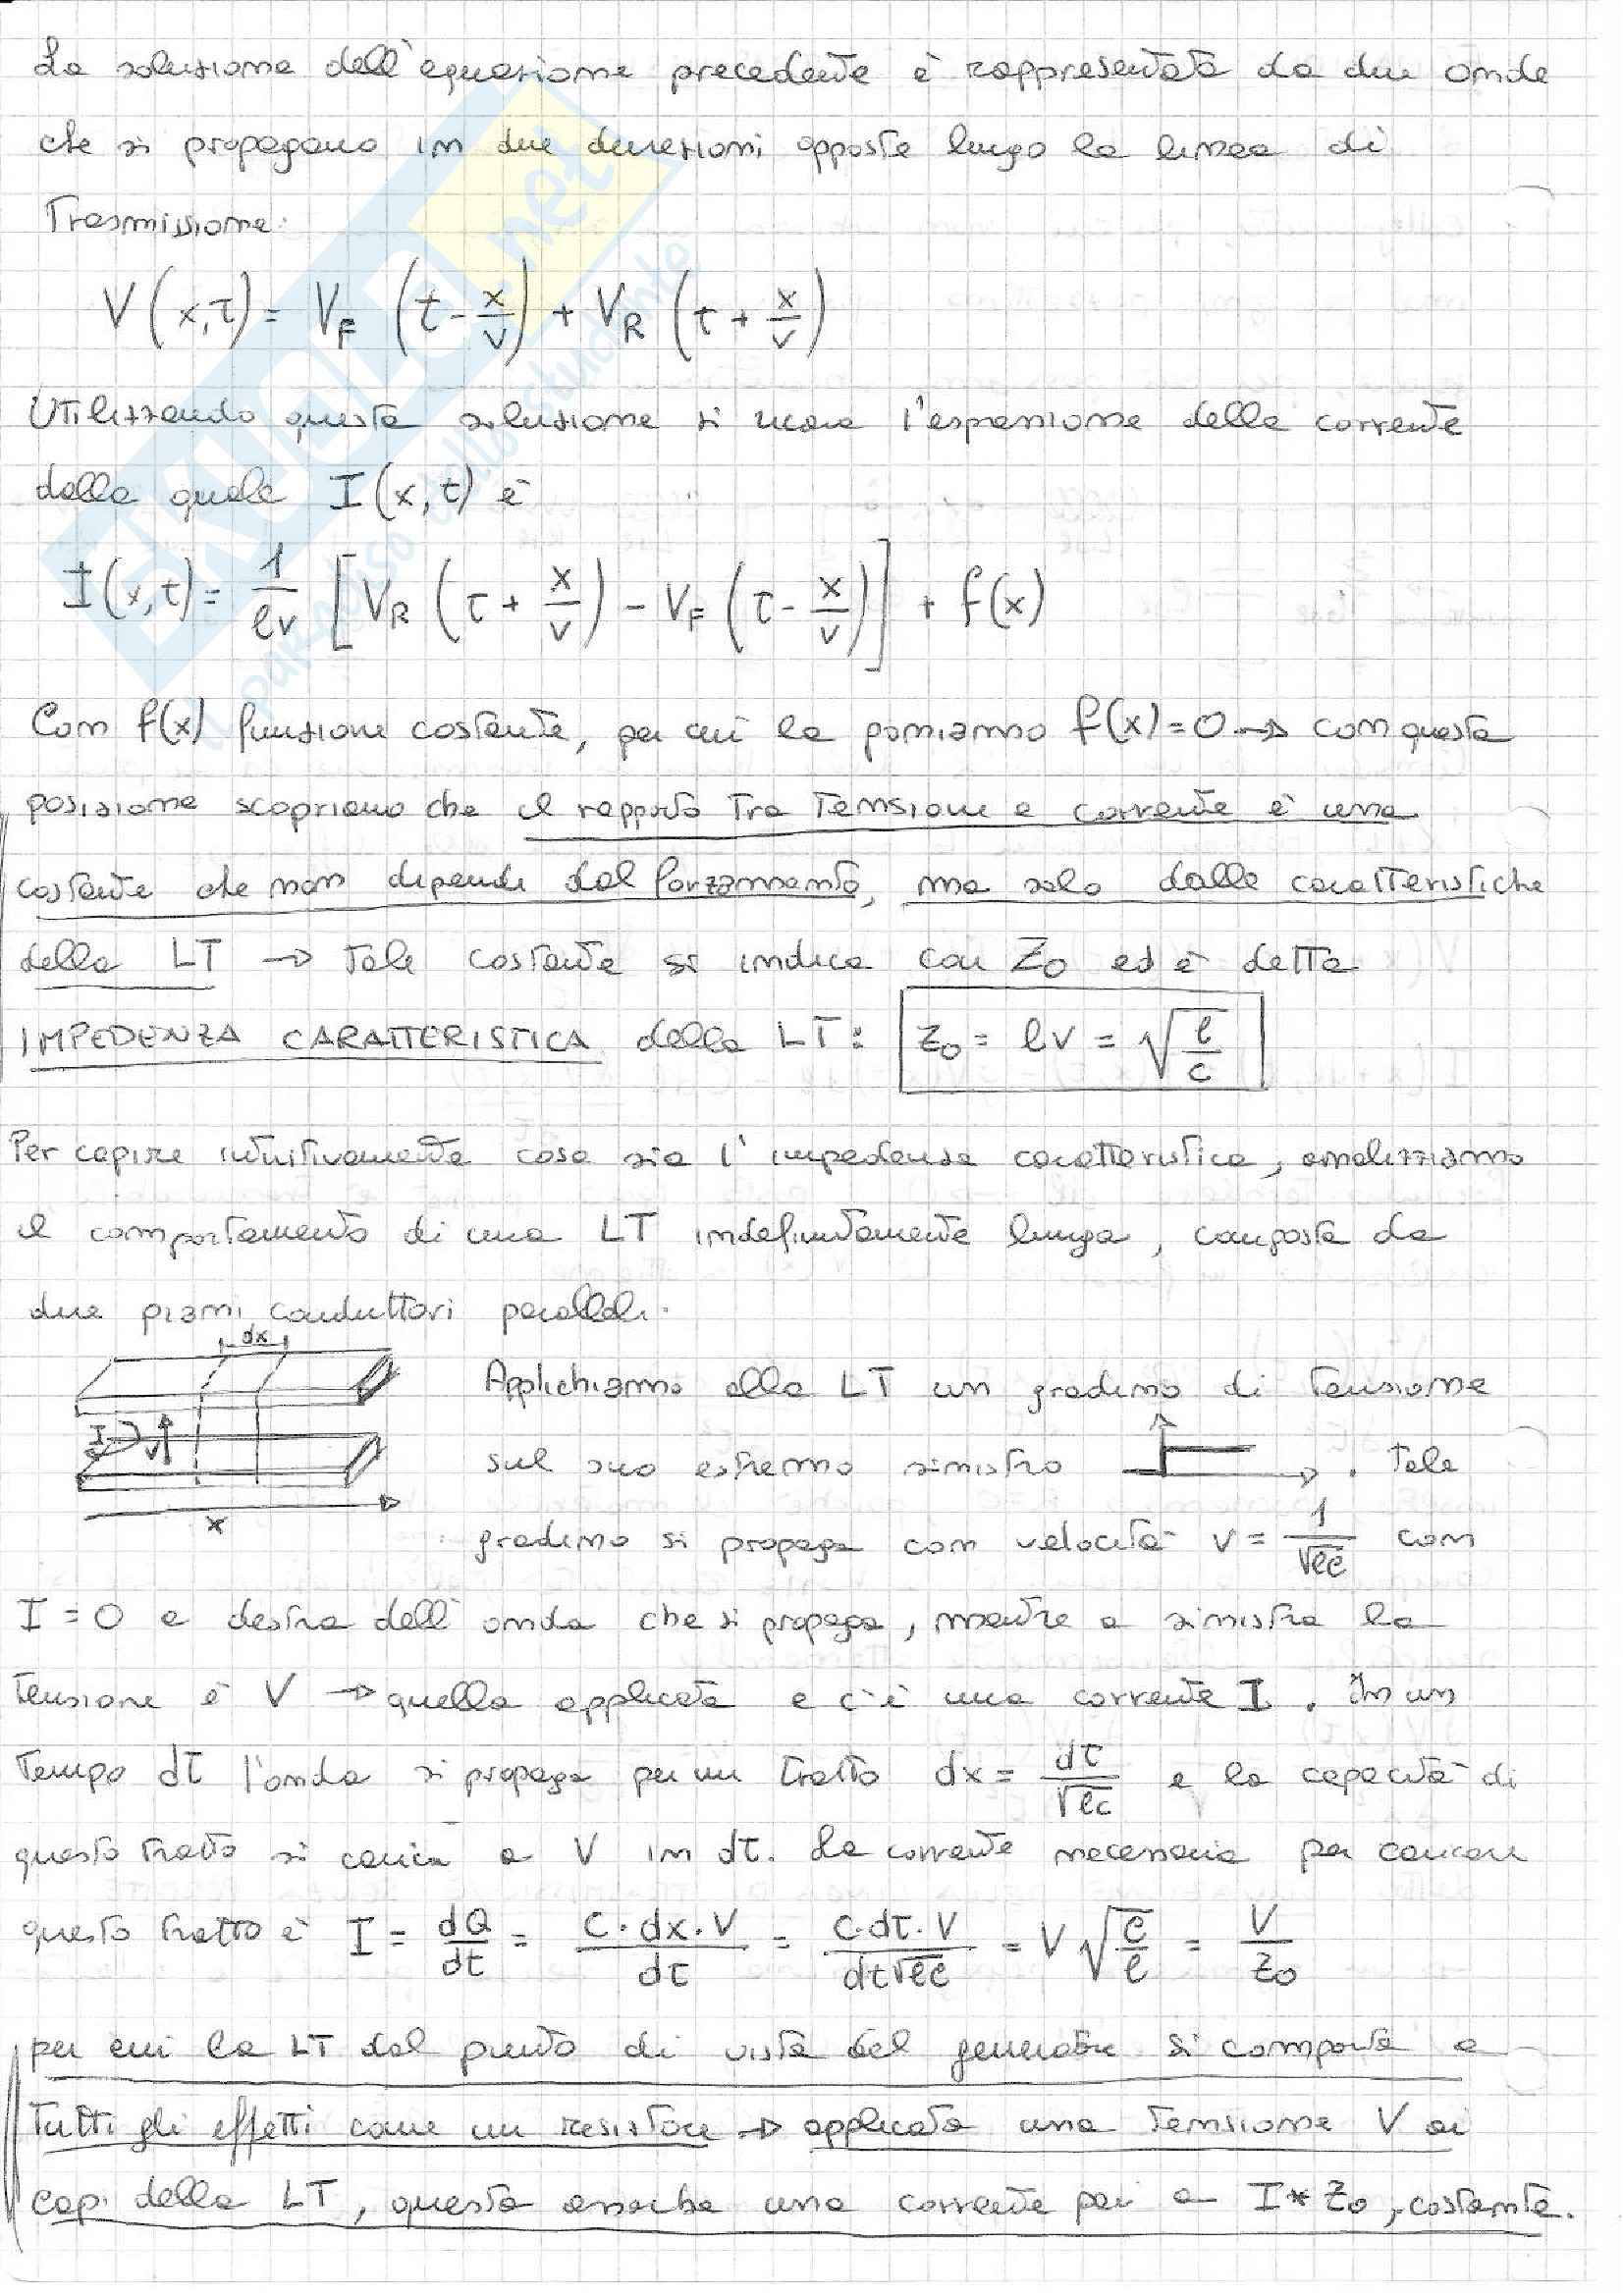 La soluzione dell'equazione precedente è rappresentata da due onde
che si propagano in due direzioni opposte lungo la linea di
Trasmissione:
V(x,t) = V_F (t - x/v) + V_R (t + x/v)
Utilizzando questa soluzione si ricava l'espressione della corrente
dalla quale I(x,t) è
I(x,t) = 1/lv [V_R (t + x/v) - V_F (t - x/v)] + f(x)
Con f(x) funzione costante, per cui la poniamo f(x)=0 → con questa
posizione scopriamo che il rapporto tra Tensione e corrente è una
costante che non dipende dal forzamento, ma solo dalle caratteristiche
della LT → Tale costante si indica con Z0 ed è detta
IMPEDENZA CARATTERISTICA della LT: Z0 = lv = √(l/c)
Per capire intuitivamente cosa sia l'impedenza caratteristica, analizziamo
il comportamento di una LT indefinitamente lunga, composta da
due piani conduttori paralleli.
dx
Applichiamo alla LT un gradino di Tensione
I V
sul suo estremo sinistro . Tale
x
gradino si propaga con velocità v = 1/√lc con
I = 0 a destra dell'onda che si propaga, mentre a sinistra la
Tensione è V → quella applicata e c'è una corrente I. In un
Tempo dt l'onda si propaga per un tratto dx = dt/√lc e la capacità di
questo tratto si carica a V in dt. La corrente necessaria per caricare
questo tratto è I = dQ/dt = C·dx·V/dt = C·dt·V/dt√lc = V√(c/l) = V/Z0
per cui la LT dal punto di vista del generatore si comporta a
Tutti gli effetti come un resistore → applicata una Tensione V ai
capi della LT, questa assorbe una corrente pari a I*Z0, costante.
SKUOLA.net
il paradiso dello studente